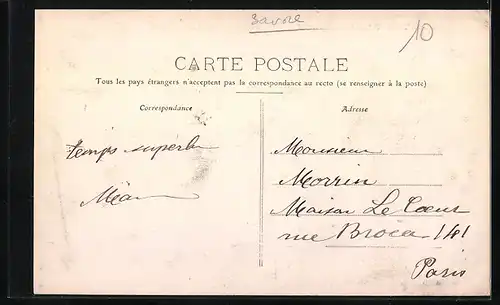 Savoie
10
CARTE POSTALE
Tous les pays étrangers n'acceptent pas la correspondance au recto (se renseigner à la poste)
Correspondance
Adresse
temps superbe
Monsieur
Morrin
Maison Le Cœur
rue Broca 141
Paris